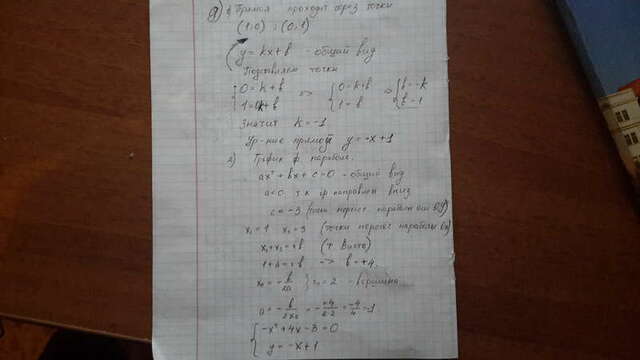 1) Прямая проходит через точки
(1;0) ; (0;1)
y = kx + b - общий вид
Подставляем точки
{0 = k + b {0 = k + b {b = -k
{1 = 0k + b => {1 = b => {b = 1
Значит k = -1
Ур-ние прямой y = -x + 1
2) График ф. парабола.
ax² + bx + c = 0 - общий вид
a < 0 т.к. гр направлен вниз
c = -3 (точка перес параболы оси Oy)
x₁ = 1 x₂ = 3 (точки перес параболы Ox)
x₁ + x₂ = b (т Виета)
=> b = +4
x₀ = -b/2a } x₀ = 2 - вершина
a = -b/2x₀ = -+4/2·2 = -4/4 = -1
{-x² + 4x - 3 = 0
{y = -x + 1